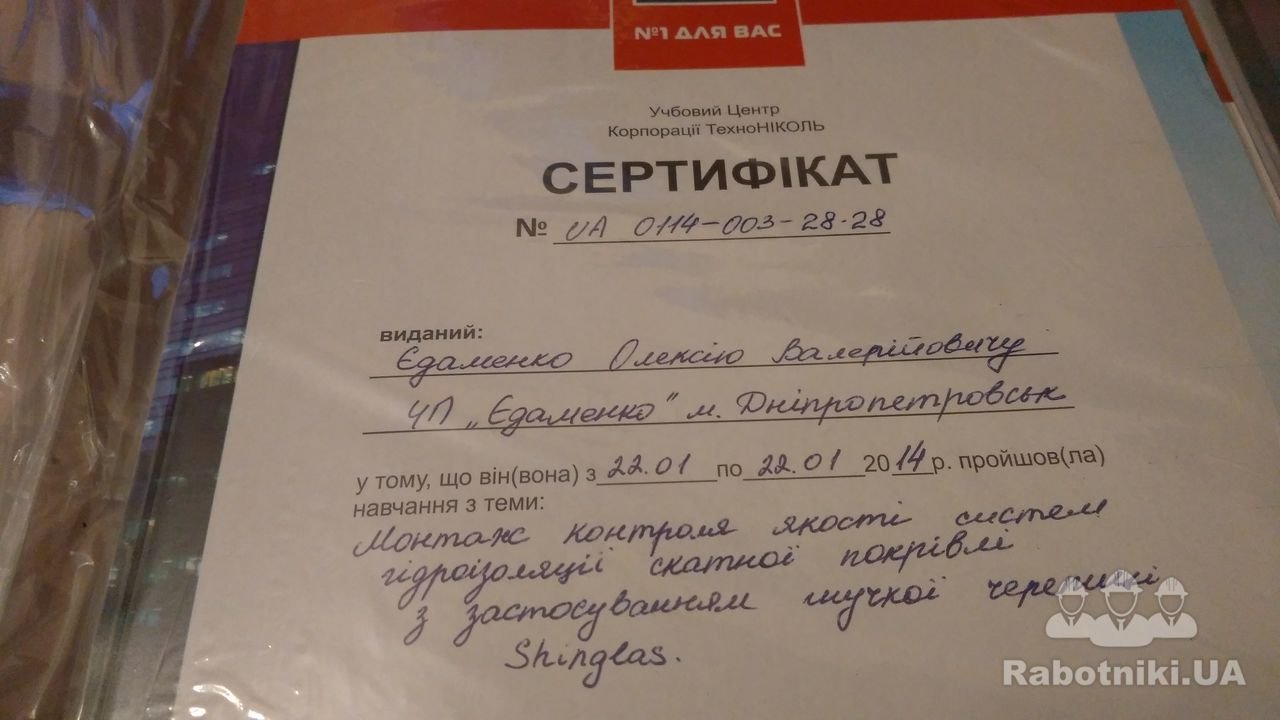 №1 ДЛЯ ВАС
Учбовий Центр
Корпорації ТехноНІКОЛЬ
СЕРТИФІКАТ
№ UA 0114-003-28-28
виданий:
Єдаменко Олексію Валерійовичу
ЧП „Єдаменко" м. Дніпропетровськ
у тому, що він(вона) з 22.01 по 22.01 2014 р. пройшов(ла)
навчання з теми:
Монтаж контроля якості систем
гідроізоляції скатної покрівлі
з застосуванням гнучкої черепиці
Shinglas.
Rabotniki.UA